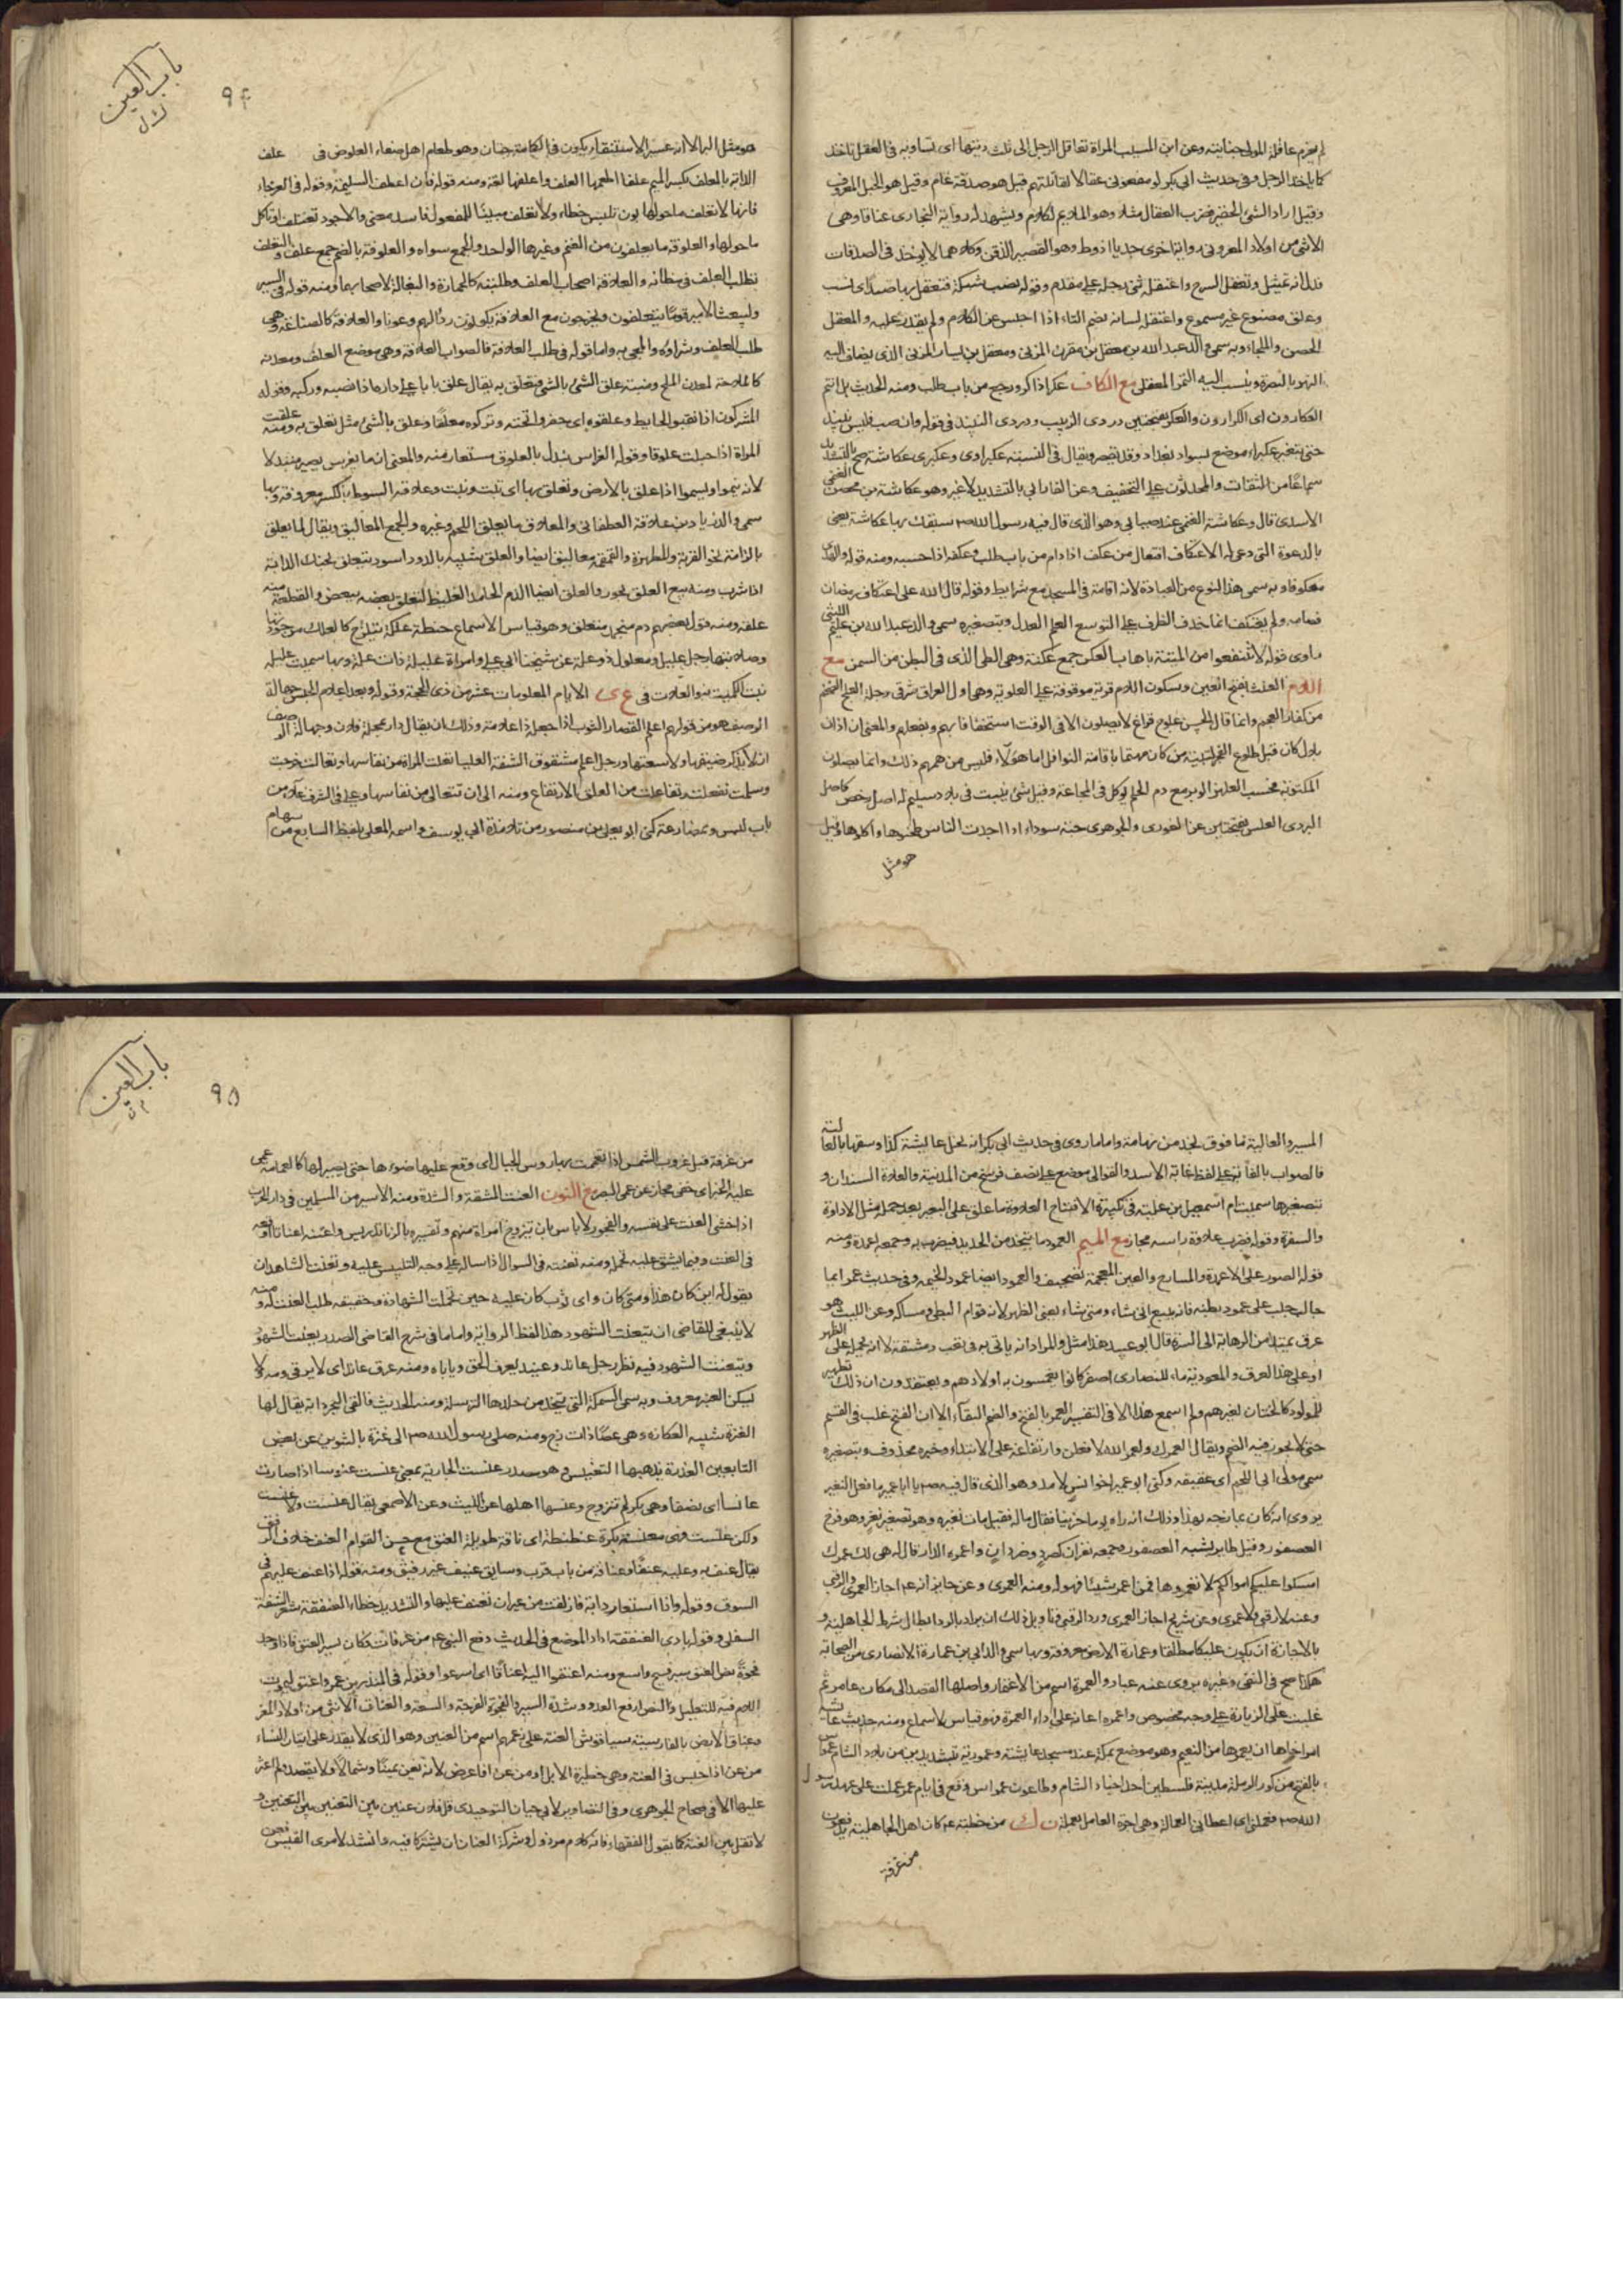 لم يغرم عاقلة المولى جنايته وعن ابن المسيب المراة تعاقل الرجل الى ثلث ديتها اى تساويه فى العقل تاخذ
كما ياخذ الرجل وفى حديث ابى بكر لو منعونى عقالا لقاتلتهم قيل هو صدقة عام وقيل هو الحبل المعروف
وقيل اراد الشئ الحقير فضرب العقال مثلا وهو الملايم لكلامه ويشهد له رواية البخارى عناقا وهى
الانثى من اولاد المعز وروى جديا اذوط وهو القصير الذقن وكلاهما لا يؤخذ فى الصدقات
فدل انه تمثيل وتعقل السرج واعتقله ثنى رجله على مقدمه وقوله نصب شبكة فتعقل بها صيد اى نشب
وعلق مصنوع غير مسموع واعتقل لسانه بضم التاء اذا احتبس عن الكلام ولم يقدر عليه والمعقل
الحصن والملجاء وبه سمى والد عبد الله بن معقل بن مقرن المزنى ومعقل بن يسار المزنى الذى يضاف اليه
النهر بالبصرة وينسب اليه التمر المعقلى مع الكاف عكر اذا كر ورجع من باب طلب ومنه الحديث بل انتم
العكارون اى الكرارون والعكر بفتحتين دردى الزيت ودردى النبيذ فى قوله وان صب فليس بنبيذ
حتى يتغير عكبراء موضع بسواد بغداد وقد يقصر ويقال فى النسبة عكبراوى وعكبرى عكاشة صح بالتشديد
سماعا من الثقات والمحدثون على التخفيف وعن الفارابى بالتشديد لا غير وهو عكاشة بن محصن
الاسدى قال وعكاشة الغنمى عند
بالدعوة التى دعى له الاعتكاف افتعال من عكف اذا دام من باب طلب وعكفه اذا حبسه ومنه قوله والهدى
معكوفا وبه سمى هذا النوع من العبادة لانه اقامة فى المسجد مع شرايط وقوله قال الله على اعتكاف رمضان
فصامه ولم يعتكف انما حذف الظرف على التوسع العلم العدل وبتصغيره سمى والد عبد الله بن عكيم الليثى
راوى قوله لا تنتفعوا من الميتة باهاب العكن جمع عكنة وهى الطى الذى فى البطن من السمن مع
اللام العلث بفتح العين وسكون اللام قرية موقوفة على العلوية وهى اول العراق شرقى دجلة العلج الضخم
من كفار العجم وانما قال الحسن علوج فراغ لا يصلون الا فى الوقت استخفافا بهم
بليل كان قبل طلوع الفجر لنبيه من كان مهتما باقامة النوافل اما هؤلاء فليس من همهم ذلك وانما يصلون
المكتوبة فحسب العلهز الوبر مع دم الحلم يؤكل فى المجاعة وقيل شئ ينبت فى بلاد سليم له اصل رخص كاصل
البردى العلس بفتحتين عن الغورى والجوهرى حبة سوداء اذا اجدب الناس طحنوها واكلوها وقيل
هو مثل
باب العين
٩٤
هو مثل البر الا انه عسر الاستنقاء يكون فى الكمامة حبتان وهو طعام اهل صنعاء العلوص فى علف
الدابة بالمعلف بكسر الميم علفا اطعمها العلف واعلفها لغة ومنه قوله فان اعلف السليقة وقوله فى العرجاء
ماحولها والعلوفة ما يعلفون من الغنم وغيرها الواحد والجمع سواء والعلوفة بالضم جمع علف والتعلف
تطلب العلف فى مظانه والعلافة اصحاب العلف وطلبته كالحمارة والبغالة لاصحابهما ومنه قوله فى السير
ولو بعث الامير قوما يتعلفون ويخرجون مع العلافة يكونون ردءا لهم وعونا والعلافة كالصناعة وهى
طلب العلف وشراؤه والمجئ به واما قوله فى طلب العلافة فالصواب العلافة وهى موضع العلف ومعدنه
كالملاحة لمعدن الملح ومنبته علق الشئ بالشئ فتعلق به يقال علق بابا على داره اذا نصبه وركبه وقوله
المشركون اذا نقبوا الحايط وعلقوه اى حفروا تحته وتركوه معلقا وعلق بالشئ مثل تعلق به ومنه علقت
المراة اذا حبلت علوقا وقوله الغراس تبدل بالعلوق مستعار منه والمعنى ان ما يغرس يصير متبدلا
لانه ينمو ويسمو اذا علق بالارض وتعلق بها اى ثبت ونبت وعلاقة السوط بالكسر معروفة وبها
سمى والد زياد بن علاقة الغطفانى والمعلاق ما يعلق اللحم وغيره والجمع المعاليق ويقال لما يعلق
بالزاملة نحو القربة والمطهرة والقمقمة معاليق ايضا والعلق شبيه بالدود اسود يتعلق بحنك الدابة
اذا شرب ومنه بيع العلق يجوز والعلق ايضا الدم الجامد الغليظ لتعلق بعضه ببعض والقطعة منه
علقة ومنه قول بعضهم دم منجمد منعلق وهو قياس لا سماع حنطة علكة تتلزج كالعلك من جودتها
وصلابتها رجل عليل ومعلول ذو علة عن شيخنا ابى على وامراة عليلة ذات علة وبها سميت عليلة
بنت الكميت والعلات فى ع ى الايام المعلومات عشر من ذى الحجة وقوله وبعد اعلام الجنس جهالة
الوصف هو من قولهم اعلم القصار الثوب اذا جعله ذا علامة وذلك ان يقال دار بمحلة فلان وجهالة الوصف
ان لا يذكر ضيقها ولا سعتها ورجل اعلم مشقوق الشفة العليا تعلت المراة من نفاسها وتعالت خرجت
وسلمت تفعلت وتفاعلت من العلو الارتفاع ومنه الى ان تتعالى من نفاسها وعلى فى الشرف علاء من
باب لبس وبمضارعه كنى ابو يعلى بن منصور من تلامذة ابى يوسف واسمه المعلى بلفظ السابع من سهام
الميسر والعالية ما فوق نجد من تهامة واما ما روى فى حديث ابى بكر انه نحل عايشة كذا وسقا بالعالية
فالصواب بالغابة على لفظ غابة الاسد والعوالى موضع على نصف فرسخ من المدينة والعلاة السندان و
بتصغيرها سميت ام اسمعيل بن علية فى تكبيرة الافتتاح العلاوة ما علق على البعير بعد حمله مثل الاداوة
والسفرة وقوله فضرب علاوة راسه مجاز مع الميم العمود ما يتخذ من الحديد فيضرب به وجمعه اعمدة ومنه
قوله الصور على الاعمدة والمسارج والعين المعجمة تصحيف والعمود ايضا عمود الخيمة وفى حديث عمر ايما
جالب جلب على عمود بطنه فانه يبيع انى شاء ومتى شاء يعنى الظهر لانه قوام البطن ومساكه وعن الليث هو
عرق يمتد من الرهابة الى السرة قال ابو عبيد هذا مثل والمراد انه ياتى به فى تعب ومشقة لا انه يحمله على الظهر
او على هذا العرق والمعمودية ماء للنصارى اصفر كانوا يغمسون به اولادهم ويعتقدون ان ذلك تطهير
للمولود كالختان لغيرهم ولم اسمع هذا الا فى التفسير العمر بالفتح والضم البقاء الا ان الفتح غلب فى القسم
حتى لا يجوز فيه الضم ويقال لعمرك ولعمر الله لافعلن وارتفاعه على الابتداء وخبره محذوف وبتصغيره
سمى مولى ابى اللحم اى عتيقه وكنى ابو عمير اخو انس لامه وهو الذى قال فيه صم يا ابا عمير ما فعل النغير
يروى انه كان يمازحه بهذا وذلك انه راه يوما حزينا فقال ماله فقيل مات نغيره وهو تصغير نغر وهو فرخ
العصفور وقيل طاير يشبه العصفور وجمعه نغران كصرد وصردان واعمره الدار قال له هى لك عمرك
امسكوا عليكم اموالكم لا تعمروها فمن اعمر شيئا فهو له ومنه العمرى وعن جابر انه عم اجاز العمرى والرقبى
وعنه لا رقبى ولا عمرى وعن شريح اجاز العمرى ورد الرقبى وتاويل ذلك ان يراد بالرد ابطال شرط الجاهلية و
بالاجازة ان يكون عليكا مطلقا وعمارة الارض معروفة وبها سمى والد ابى بن عمارة الانصارى من الصحابة
هكذا صح فى النفى وغيره يروى عنه عباد والعمرة اسم من الاعتمار واصلها القصد الى مكان عامر ثم
غلبت على الزيارة على وجه مخصوص واعمره اعانه على اداء العمرة وهو قياس لا سماع ومنه حديث عايشة
امر اخاها ان يعمرها من التنعيم وهو موضع بمكة عند مسجد عايشة وعمورية بتشديدين من بلاد الشام عمواس
بالفتح من كور الرملة مدينة فلسطين احد اجناد الشام وطاعون عمواس وقع فى ايام عمر عملت على عهد رسول
الله صم فعملنى اى اعطانى العمالة وهى اجرة العامل بعمله من خطبته عم كان اهل الجاهلية يدفعون
من عرفة
باب العين
٩٥
من عرفة قبل غروب الشمس اذا تعممت بها رؤس الجبال اى وقع عليها ضوءها حتى يصير لها كالعمامة عمى
عليه الخبر اى خفى مجاز عن عمى البصر مع النون العنت المشقة والشدة ومنه الاسير من المسلمين فى دار الحرب
اذا خشى العنت على نفسه والفجور لا باس بان يتزوج امراة منهم وتفسيره بالزنا تدريس واعنته اعناتا اوقعه
فى العنت وفيما يشق عليه تحمله ومنه تعنته فى السؤال اذا ساله على وجه التلبيس عليه وتعنت الشاهد ان
يقول له اين كان هذا ومتى كان واى ثوب كان عليه حين تحملت الشهادة وحقيقته طلب العنت له ومنه
لا ينبغى للقاضى ان يتعنت الشهود هذا لفظ الرواية واما ما فى شرح القاضى الصدر يعنت الشهود
ويتعنت الشهود فيه نظر رجل عاند وعنيد يعرف الحق وياباه ومنه عرق عاند اى لا يرقى دمه لا
يسكن العنبر معروف وبه سمى السمكة التى يتخذ من جلدها الترسة ومنه الحديث فالقى البحر دابة يقال لها
العنزة شبيه العكازة وهى عصا ذات زج ومنه صلى رسول الله صم الى عنزة بالتنوين عن بعض
التابعين العذرة يذهبها التعنيس وهو مصدر عنست الجارية بمعنى عنست عنوسا اذا صارت
عانسا اى نصفا وهى بكر لم تتزوج وعنسها اهلها عن الليث وعن الاصمعى يقال عنست ولا عنست
ولكن عنست وهى معنسة بكرة عنطنطة اى ناقة طويلة العنق مع حسن القوام العنف خلاف الرفق
يقال عنف به وعليه عنفا وعنافة من باب قرب وسايق عنيف غير رفيق ومنه قوله اذا عنف عليهم فى
السوق وقوله واذا استعار دابة فازلقت من غير ان تعنف عليها والتشديد خطاء العنفقة شعر الشفة
السفلى وقوله بادى العنفقة اراد الموضع فى الحديث دفع النبى عم من عرفات فكان يسير العنق فاذا وجد
فجوة نص العنق سير فسيح واسع ومنه اعنقوا اليه اعناقا اى اسرعوا وقوله فى المنذر بن عمرو اعنق ليموت
اللام فيه للتعليل والنص ارفع العدو وشدة السير والفجوة الفرجة والسعة والعناق الانثى من اولاد المعز
وعناق الارض بالفارسية سياه گوش العنة على زعمهم اسم من العنين وهو الذى لا يقدر على اتيان النساء
من عن اذا حبس فى العنة وهى حظيرة الابل او من عن اذا عرض لانه يعن يمينا وشمالا ولا يقصده ولم اعثر
عليها الا فى صحاح الجوهرى وفى البصاير لابى حيان التوحيدى قل فلان عنين بين التعنين بين التعنين و
لا تقل بين العنة كما يقول الفقهاء فانه كلام مرذول وشركة العنان ان يشتركا فيه وانشد لامرى القيس فعن